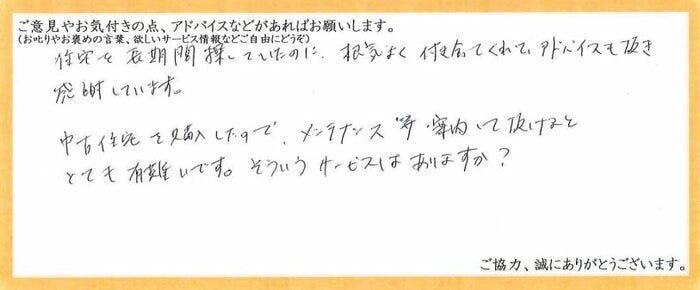 ご意見やお気付きの点、アドバイスなどがあればお願いします。
(お叱りやお褒めの言葉、欲しいサービス情報などご自由にどうぞ)
住宅を長期間探していたのに、根気よく付き合てくれて、アドバイスも頂き
感謝しています。
中古住宅を購入したので、メンテナンス等案内して頂けると
とても有難いです。そういうサービスはありますか？
ご協力、誠にありがとうございます。